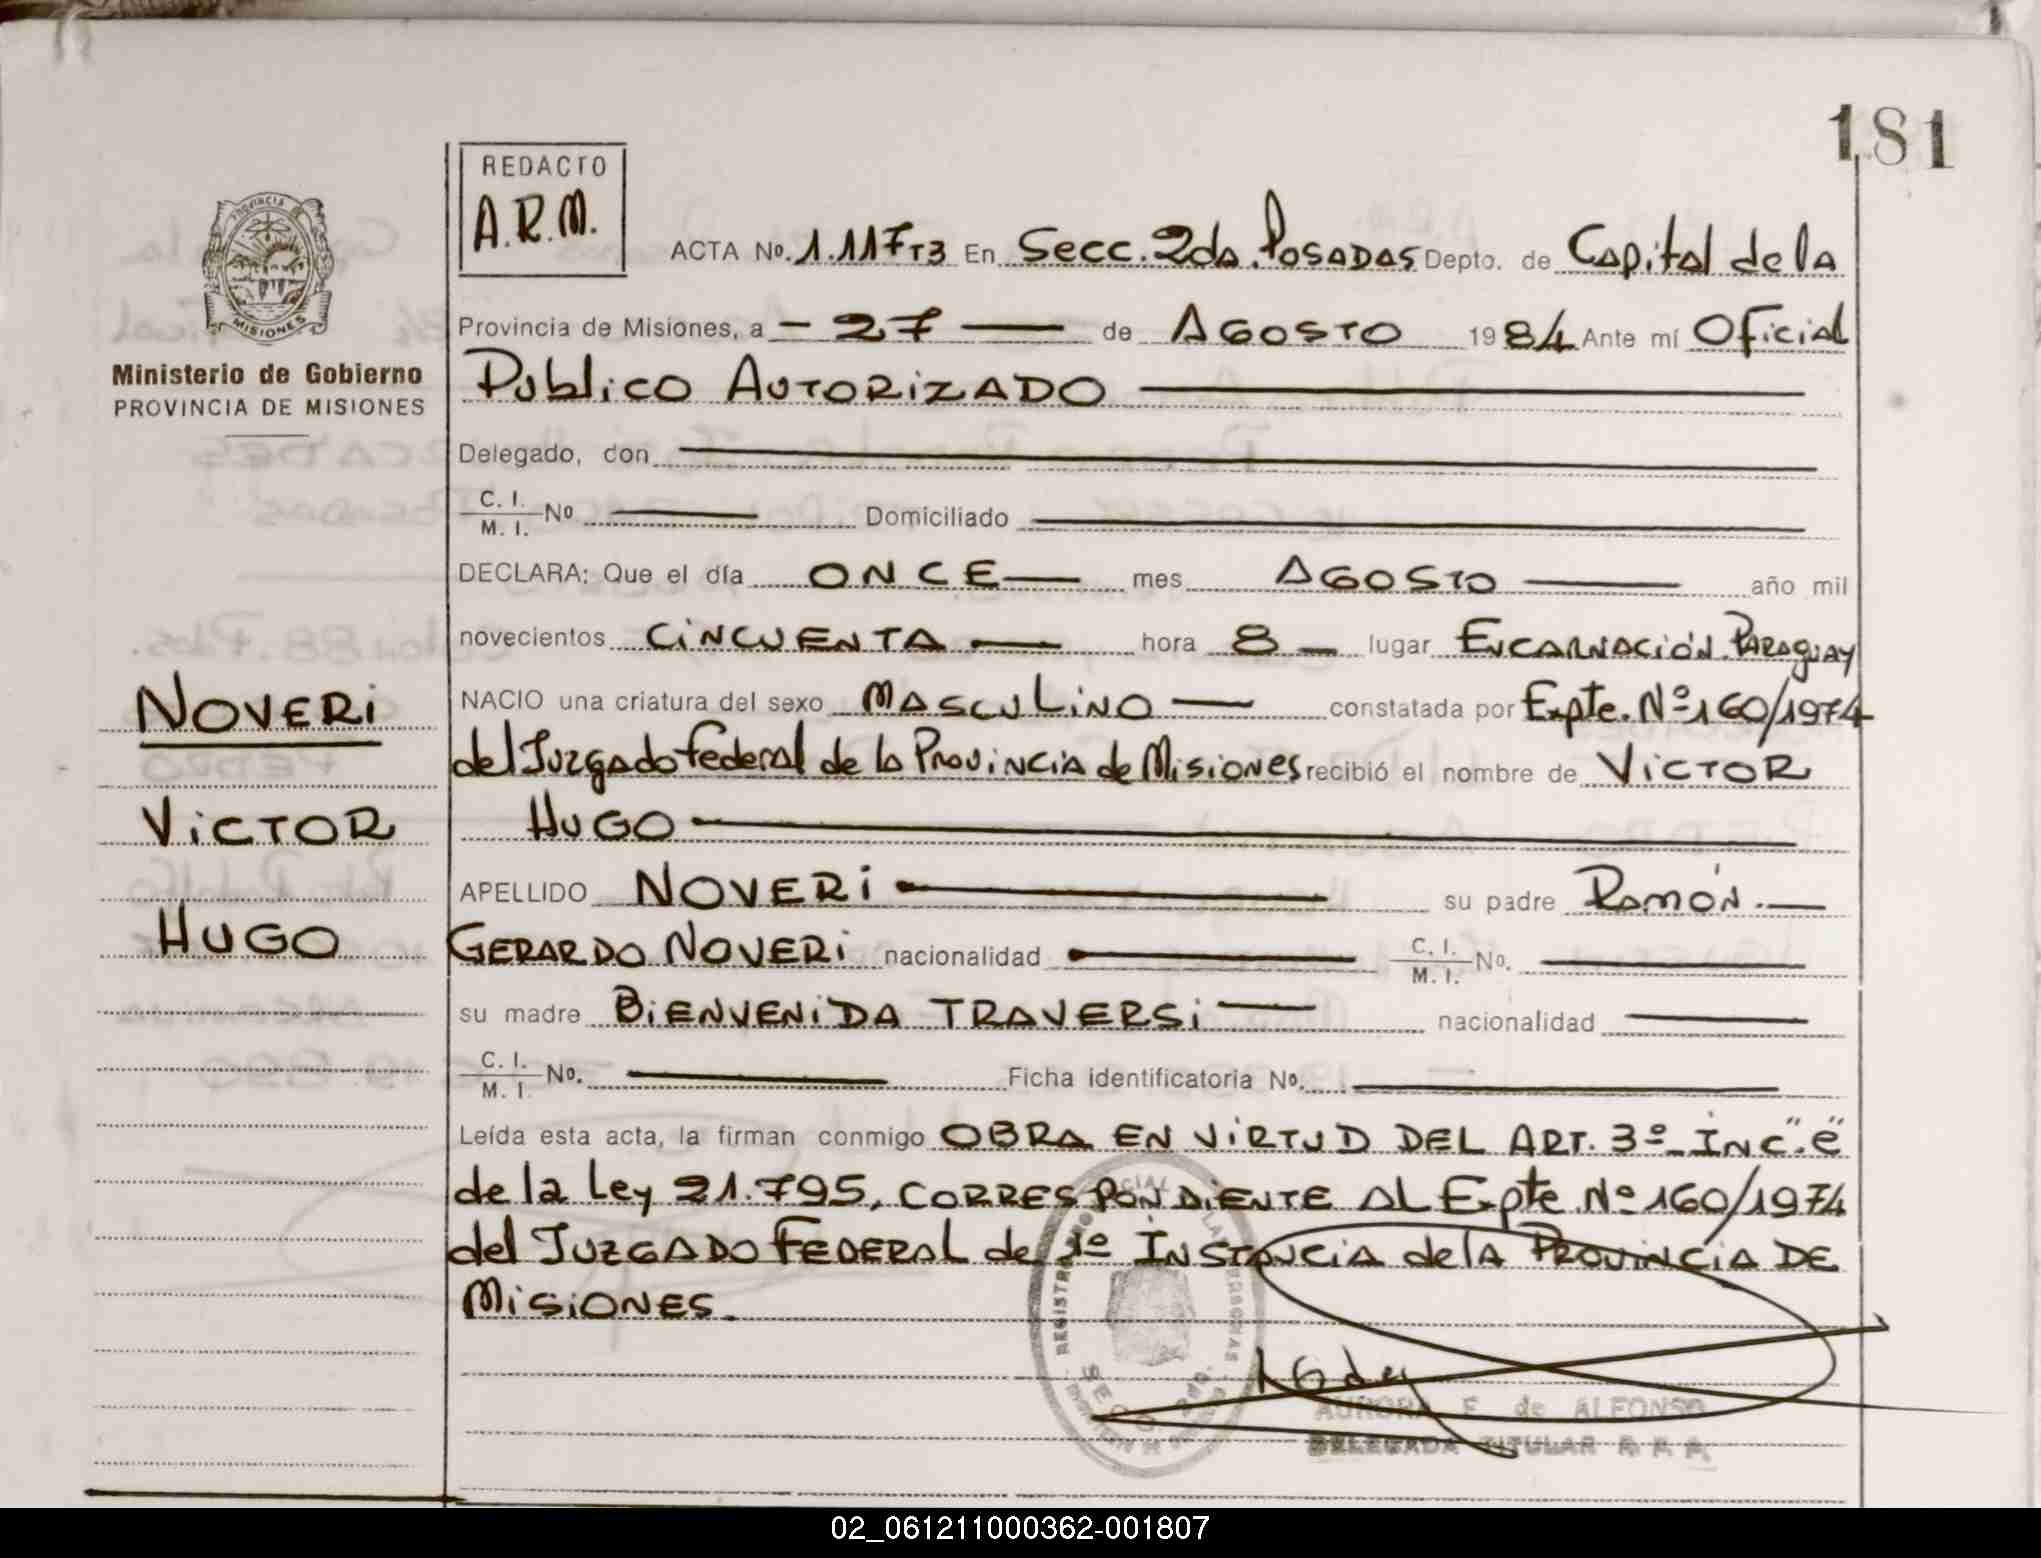 181
REDACTO
A.R.M.
PROVINCIA
MISIONES
Ministerio de Gobierno
PROVINCIA DE MISIONES
ACTA No. 1.117T3 En Secc. 2da. POSADAS Depto. de Capital de la
Provincia de Misiones, a - 27 — de AGOSTO 1984 Ante mí Oficial
Publico AUTORIZADO
Delegado, don
C. I.
M. I. No Domiciliado
DECLARA: Que el día ONCE mes AGOSTO año mil
novecientos CINCUENTA hora 8 lugar ENCARNACIÓN. PARAGUAY
NACIO una criatura del sexo MASCULINO constatada por Expte. Nº 160/1974
del Juzgado Federal de la Provincia de Misiones recibió el nombre de VICTOR
HUGO
APELLIDO NOVERI su padre Ramón.
GERARDO NOVERI nacionalidad C. I.
M. I. No.
su madre BIENVENIDA TRAVERSI nacionalidad
C. I.
M. I. No. Ficha identificatoria No.
Leída esta acta, la firman conmigo OBRA EN VIRTUD DEL ART. 3º- INC. "e"
de la Ley 21.795, CORRESPONDIENTE AL Expte. Nº 160/1974
del JUZGADO FEDERAL de 1º INSTANCIA de la PROVINCIA DE
MISIONES.
NOVERI
VICTOR
HUGO
AURORA F. de ALFONSO
DELEGADA TITULAR R. P. P.
02_061211000362-001807